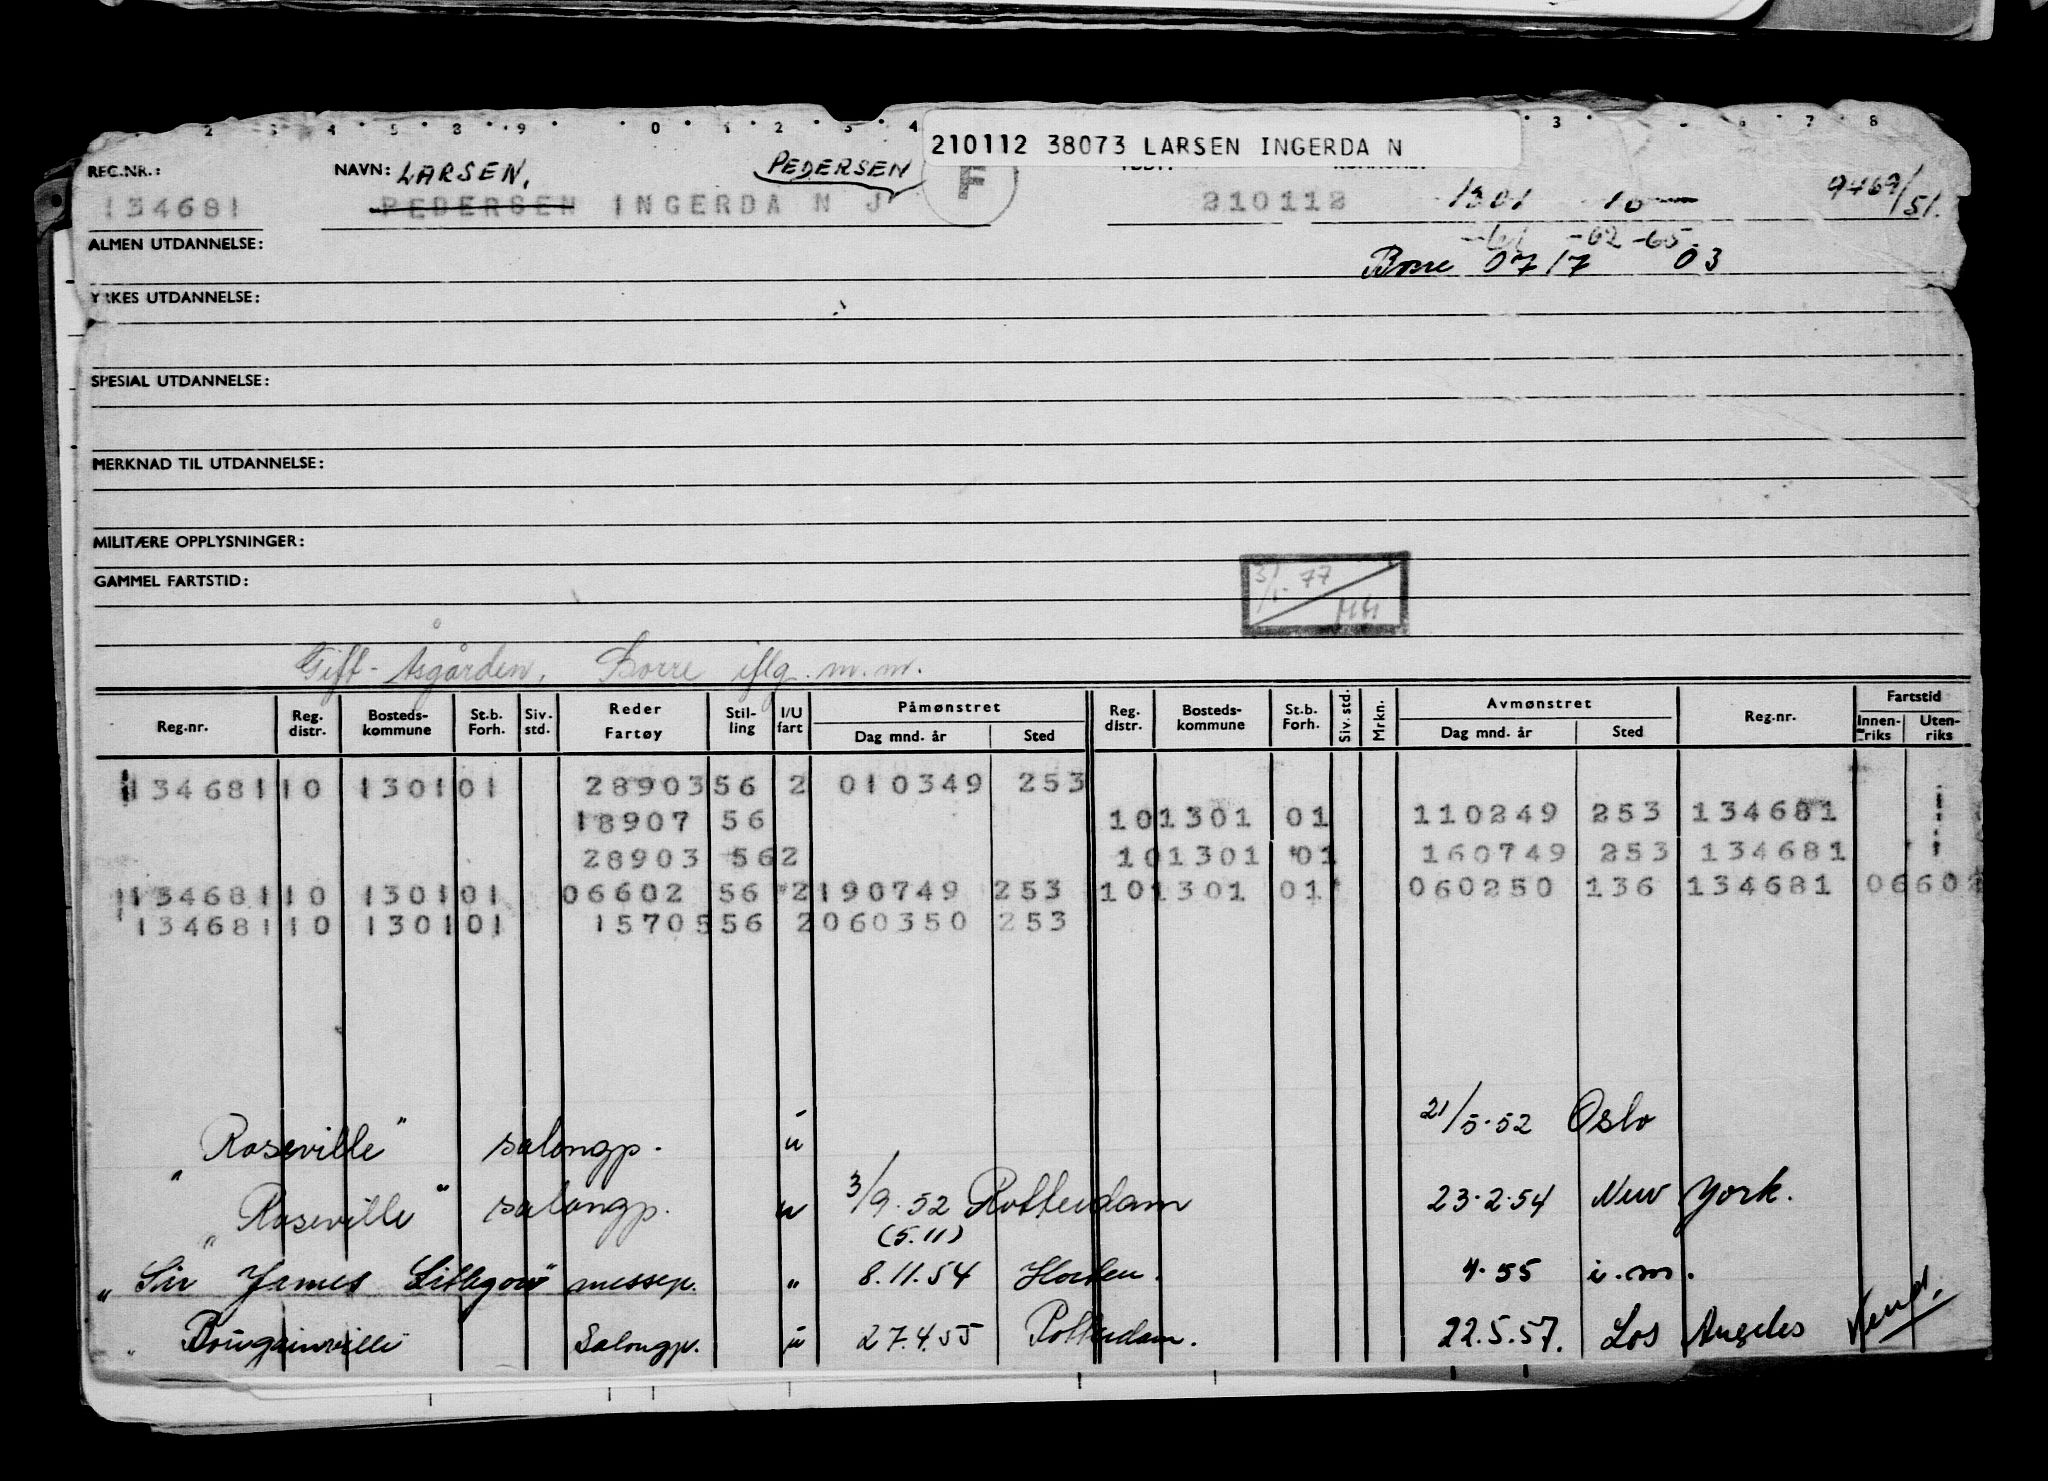 2 3 4 5 8 9 0 1 2 3 4 3 6 7 8
210112 38073 LARSEN INGERDA N
REG.NR.: NAVN: LARSEN, PEDERSEN F
134681 PEDERSEN INGERDA N J 210112 1301 10 9469/51.
ALMEN UTDANNELSE: -61 -62 -65
Borre 0717 03
YRKES UTDANNELSE:
SPESIAL UTDANNELSE:
MERKNAD TIL UTDANNELSE:
MILITÆRE OPPLYSNINGER:
GAMMEL FARTSTID:
77
Gift - Åsgården, Borre iflg. m.m.
Reg.nr. Reg. distr. Bosteds- kommune St.b. Forh. Siv. std. Reder Fartøy Stil- ling I/U fart Påmønstret Dag mnd. år Sted Reg. distr. Bosteds- kommune St.b. Forh. Siv. std. Mrkn. Avmønstret Dag mnd. år Sted Reg.nr. Fartstid Innen- riks Uten- riks
134681 10 1301 01 28903 56 2 010349 253
18907 56 10 1301 01 110249 253 134681
28903 56 2 10 1301 01 160749 253 134681
134681 10 1301 01 06602 56 2 190749 253 10 1301 01 060250 136 134681 06602
134681 10 1301 01 15705 56 2 060350 253
"Roseville" salongp. u 21/5.52 Oslo
"Roseville" salongp. u 3/9.52 Rotterdam 23.2.54 New York.
(5.11)
"Sir James Lithgow" messep. " 8.11.54 Horten. 4.55 i.m.
" Bougainville Salongp. u 27.4.55 Rotterdam. 22.5.57. Los Angeles Vend.